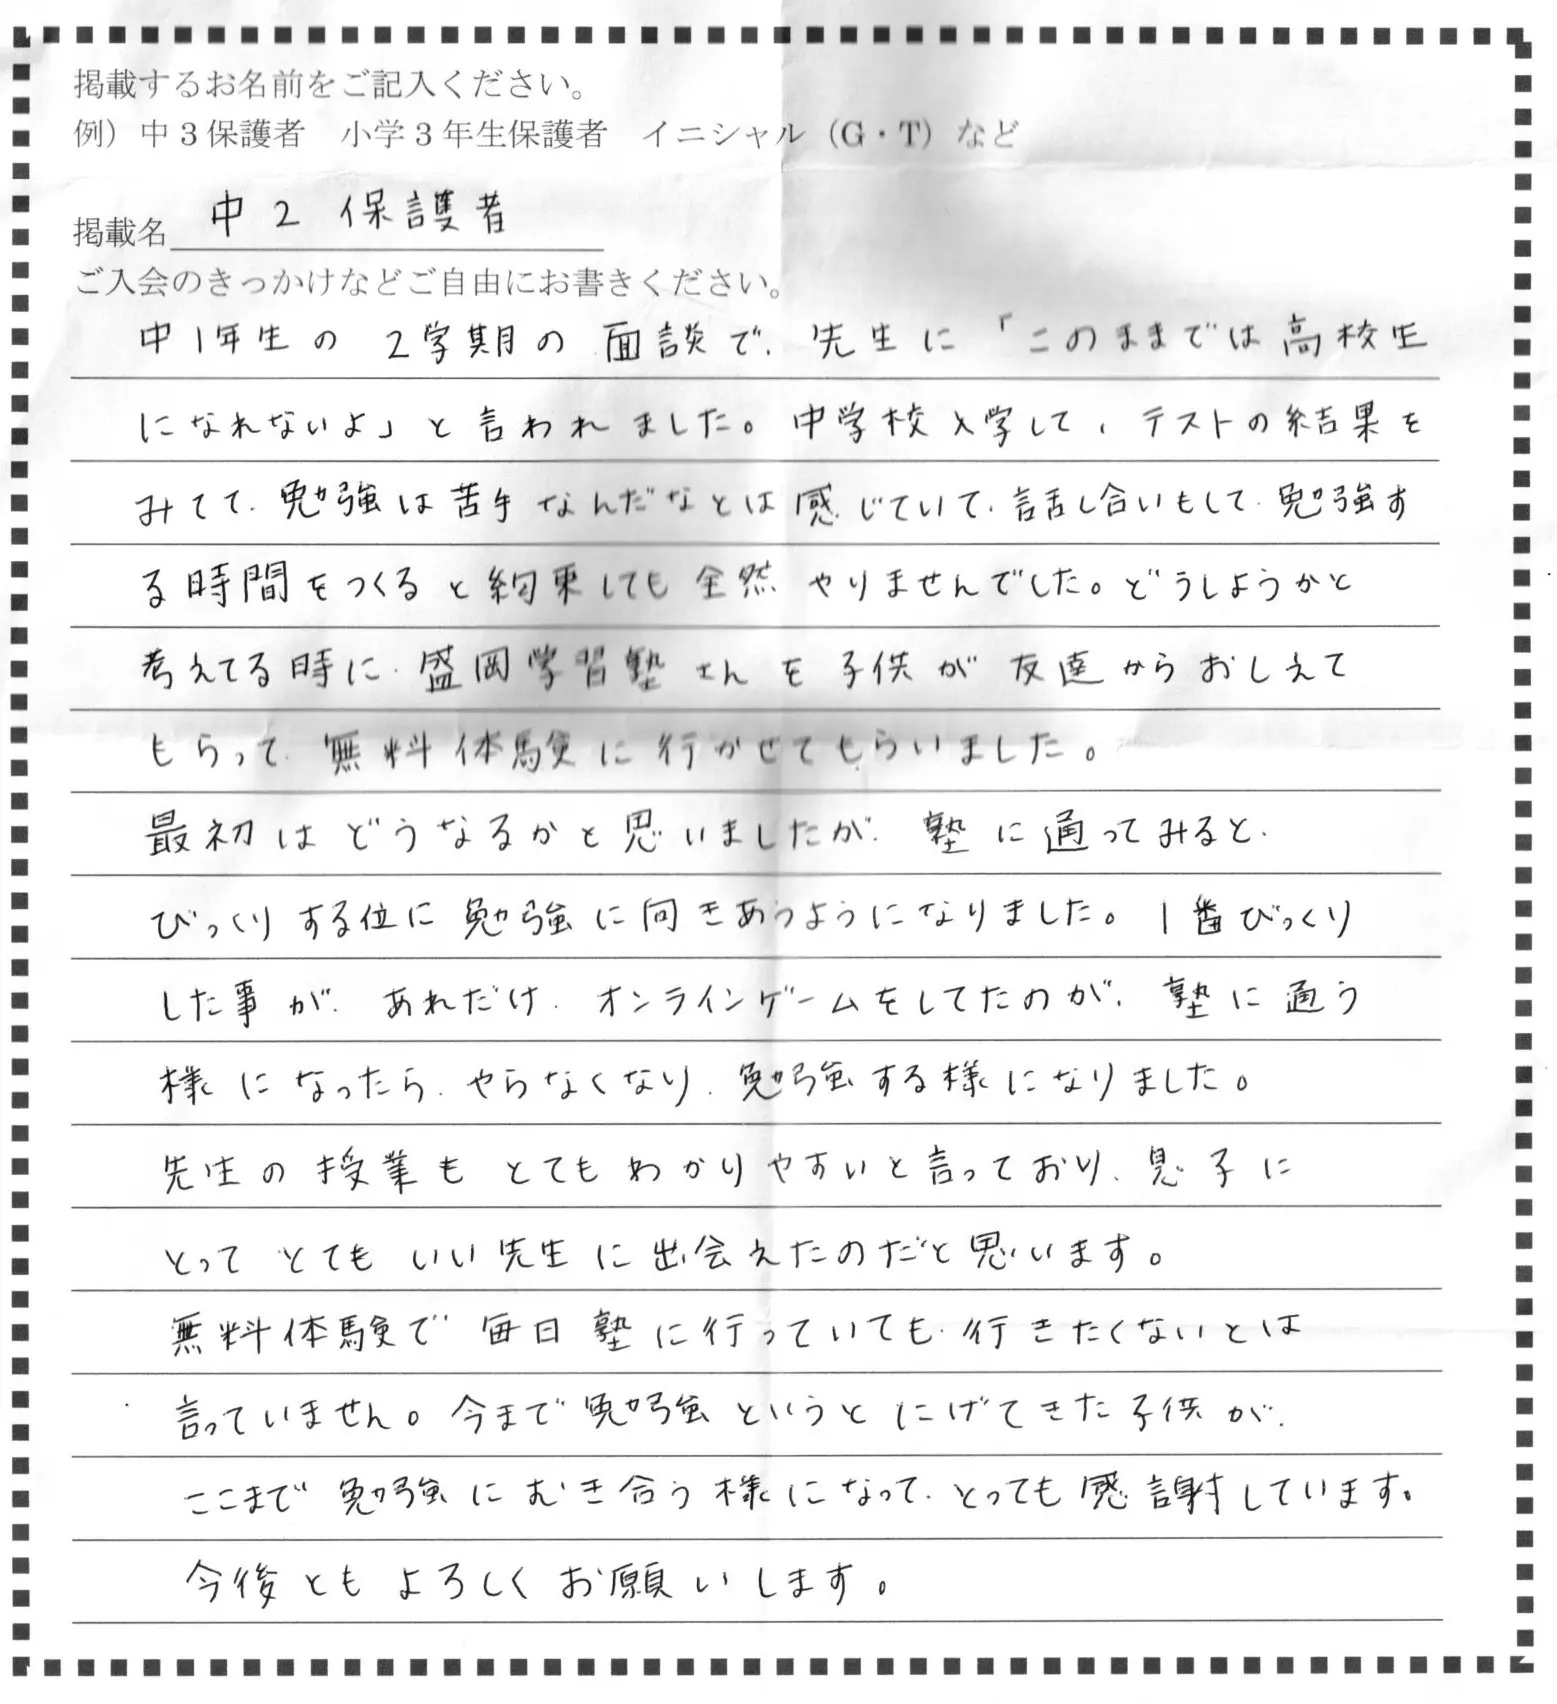 掲載するお名前をご記入ください。
例）中３保護者　小学３年生保護者　イニシャル（G・T）など
掲載名 中２ 保護者
ご入会のきっかけなどご自由にお書きください。
中１年生の ２学期の 面談で、先生に「このままでは高校生
になれないよ」と言われました。中学校入学して、テストの結果を
みてて、勉強は苦手なんだなとは感じていて、話し合いもして、勉強す
る時間をつくると約束しても全然やりませんでした。どうしようかと
考えてる時に、盛岡学習塾さんを子供が友達からおしえて
もらって、無料体験に行かせてもらいました。
最初はどうなるかと思いましたが、塾に通ってみると、
びっくりする位に勉強に向きあうようになりました。１番びっくり
した事が、あれだけ、オンラインゲームをしてたのが、塾に通う
様になったら、やらなくなり、勉強する様になりました。
先生の授業もとてもわかりやすいと言っており、息子に
とってとてもいい先生に出会えたのだと思います。
無料体験で毎日塾に行っていても、行きたくないとは
言っていません。今まで勉強というとにげてきた子供が、
ここまで勉強にむき合う様になって、とっても感謝しています。
今後ともよろしくお願いします。